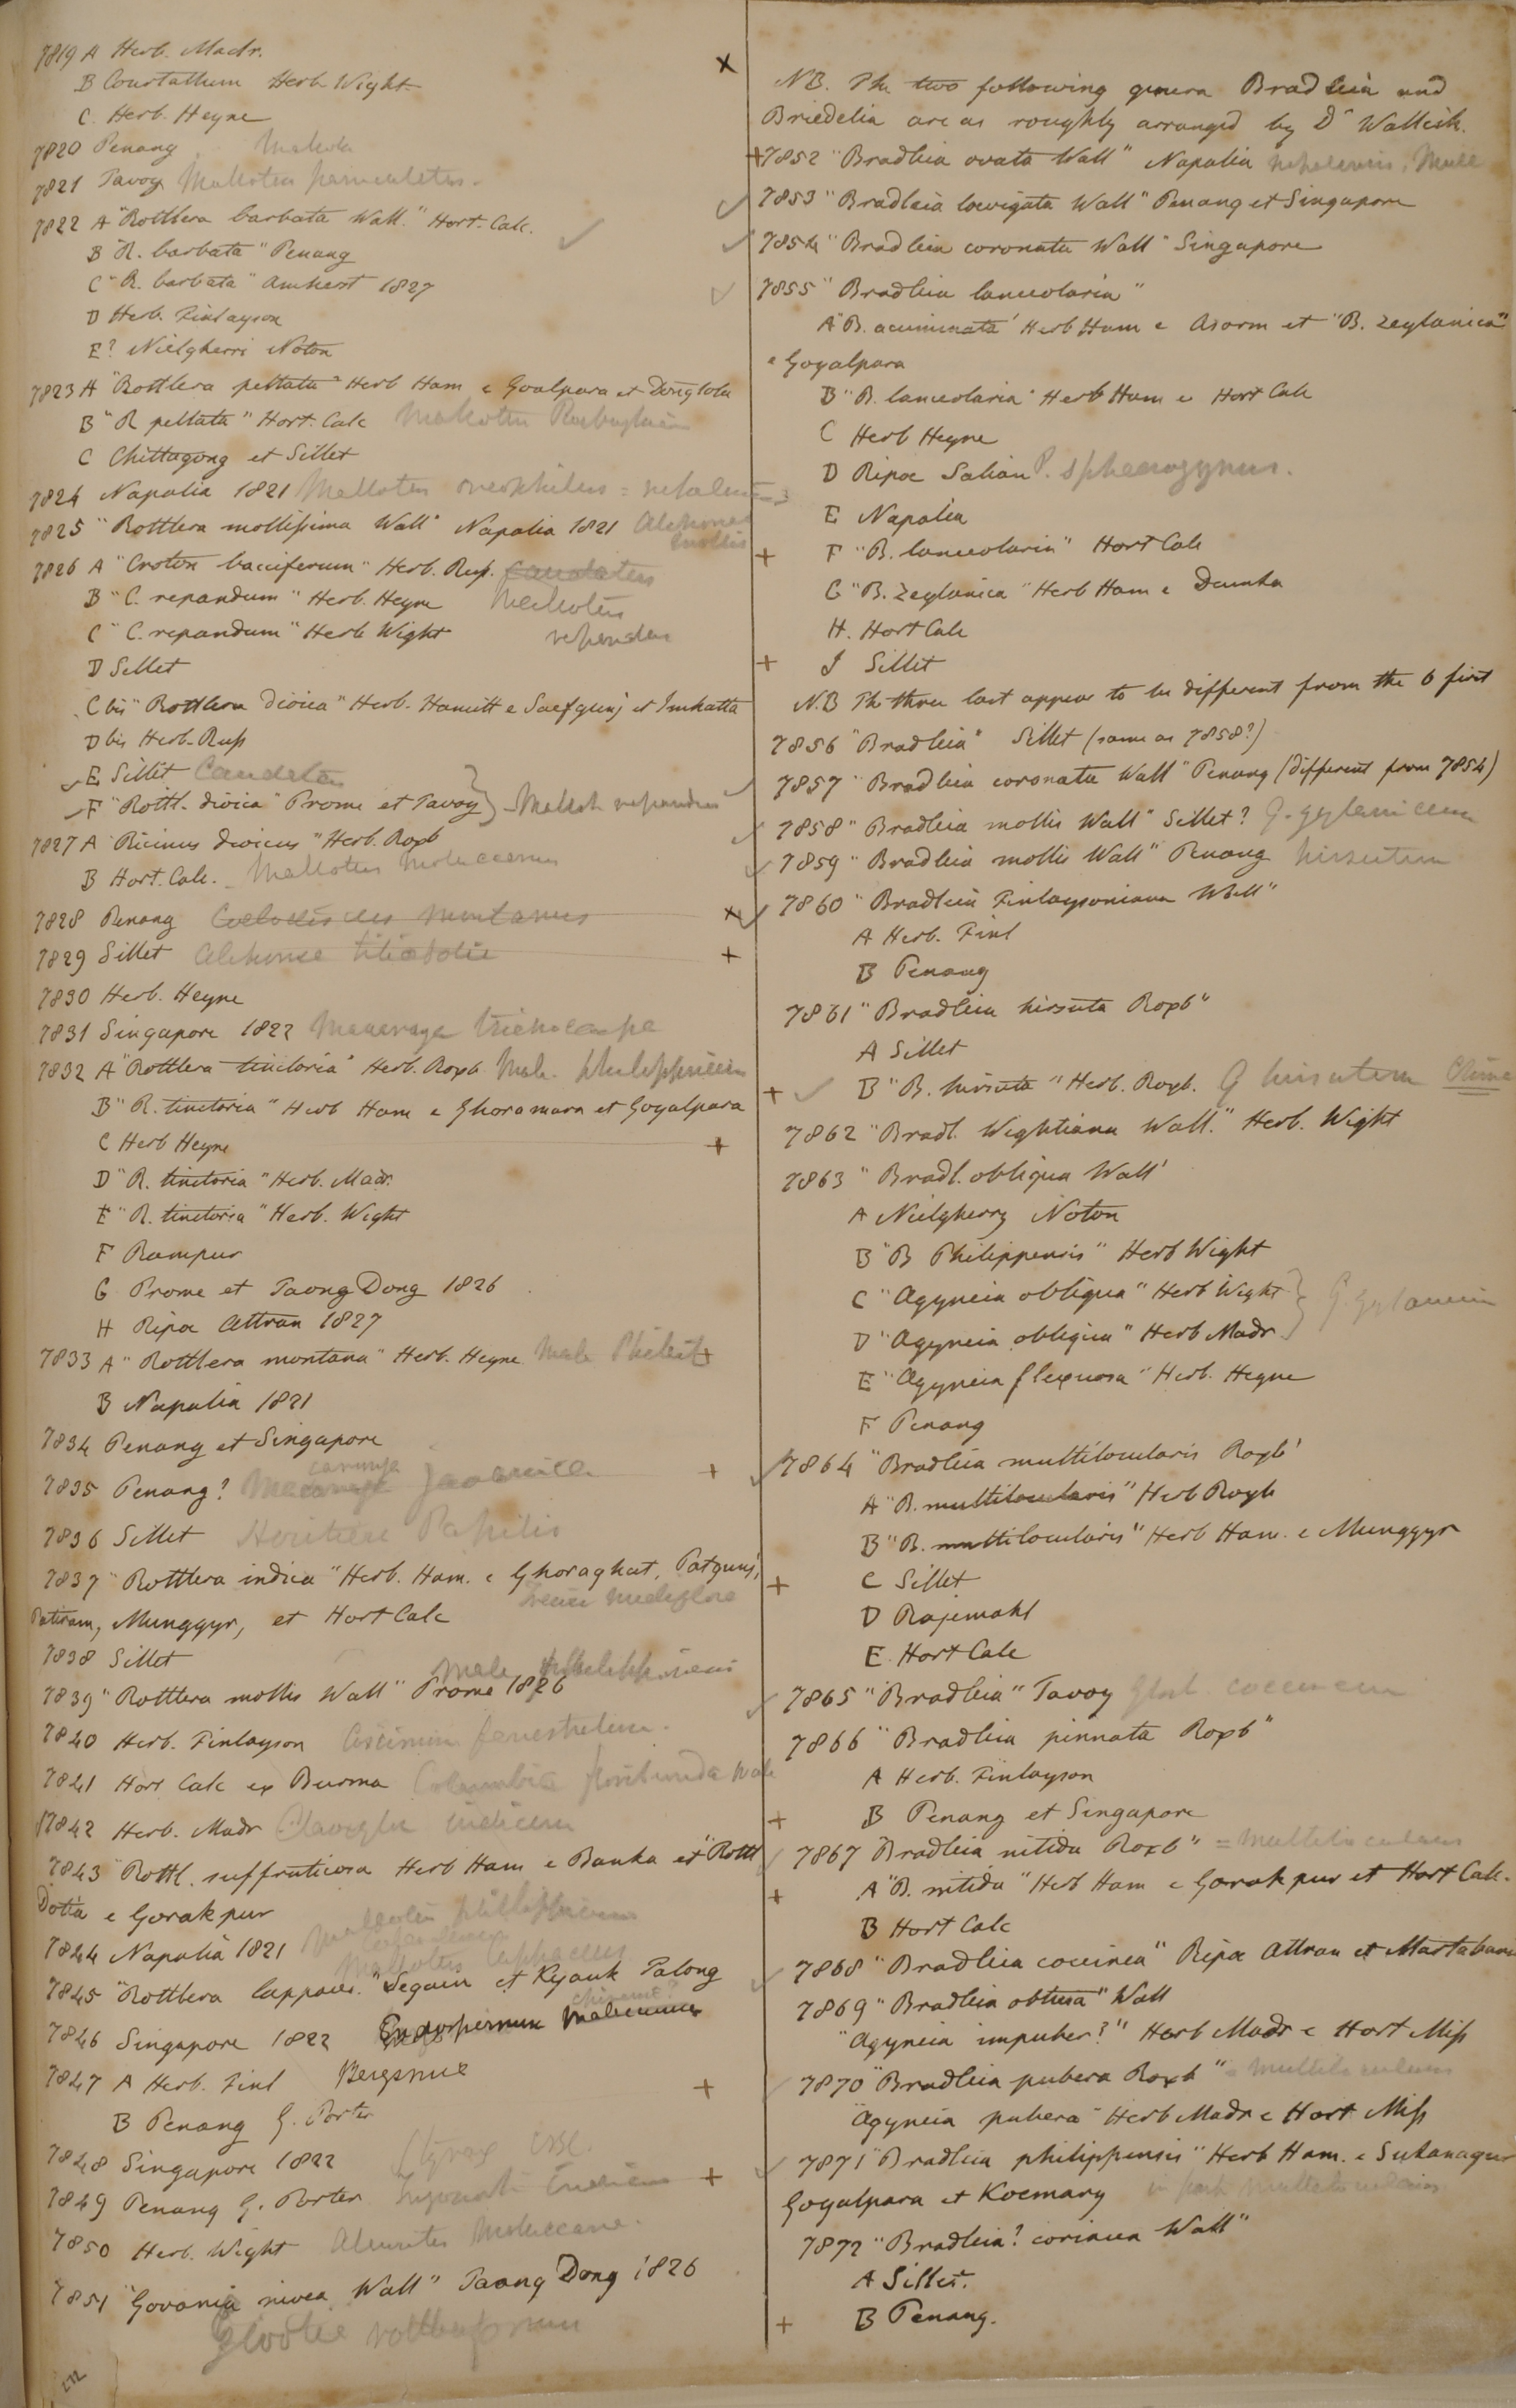 7819 A Herb. Madr.
B Courtallum Herb Wight
C. Herb. Heyne
7820 Penang
7821 Tavoy Mallotus paniculatus.
7822 A "Rottlera barbata Wall." Hort. Calc.
B "R. barbata" Penang
C "R. barbata" Amherst 1827
D Herb. Finlayson
E? Nielgherri Noton
7823 A "Rottlera peltata" Herb Ham e Goalpara et
B "R peltata" Hort. Calc Mallotus Roxburghianus
C Chittagong et Sillet
7824 Napalia 1821 Mallotus oreophilus = nepalensis
7825 "Rottlera mollissima Wall" Napalia 1821
mollis
7826 A "Croton bacciferum" Herb. Rup.
B "C. repandum" Herb. Heyne Mallotus
C "C. repandum" Herb Wight repandus
D Sillet
C bis "Rottlera dioica" Herb. Hamilt e et
D bis Herb. Rup
E Sillet
F "Rottl. dioica" Prome et Tavoy} Mallot. repandus
7827 A "Ricinus dioicus" Herb. Roxb
B Hort. Calc. Mallotus moluccanus
7828 Penang Coelodiscus montanus
7829 Sillet tiliaefolia
7830 Herb. Heyne
7831 Singapore 1822 Macaranga trichocarpa
7832 A "Rottlera tinctoria" Herb. Roxb Mall. philippinensis
B "R. tinctoria" Herb Ham e Ghoramara et Goyalpara
C Herb Heyne
D "R. tinctoria" Herb. Madr.
E "R. tinctoria" Herb. Wight
F Rampur
G Prome et Taong Dong 1826
H Ripa Attran 1827
7833 A "Rottlera montana" Herb. Heyne
B Napalia 1821
7834 Penang et Singapore
7835 Penang? Macaranga javanica
7836 Sillet Papilio
7837 "Rottlera indica" Herb. Ham. e Ghoraghat, Patgunj,
Patiram, Munggyr, et Hort Calc Trewia nudiflora
7838 Sillet
7839 "Rottlera mollis Wall" Prome 1826
7840 Herb. Finlayson Coscinium fenestratum.
7841 Hort Calc ex Burma Columbia floribunda Wall
7842 Herb. Madr Claoxylon indicum
7843 "Rottl. suffruticosa Herb Ham e Banka et "Rottl
Dotia e Gorakpur
7844 Napalia 1821
Mallotus lappaceus
7845 "Rottlera lappacea." Segain et Kyouk Talong
7846 Singapore 1822 Endospermum
7847 A Herb. Finl Bergsmia
B Penang G. Porter
7848 Singapore 1822 Styrax
7849 Penang G. Porter
7850 Herb. Wight Aleurites moluccana.
7851 "Govania nivea Wall" Taong Dong 1826
rottleraeformis
272
NB. The two following genera Bradleia and
Briedelia are as roughly arranged by Dr Wallich.
7852 "Bradleia ovata Wall" Napalia nepalensis, Muell
7853 "Bradleia loevigata Wall" Penang et Singapore
7854 "Bradleia coronata Wall" Singapore
7855 "Bradleia lanceolaria"
A "B. acuminata" Herb Ham e Asam et "B. zeylanica"
e Goyalpara
B "B. lanceolaria" Herb Ham e Hort Calc
C Herb Heyne
D Ripa Salian P. sphaerogynus.
E Napalia
F "B. lanceolaria" Hort Calc
G "B. zeylanica" Herb Ham e Dumka
H. Hort Calc
I Sillet
N.B The three last appear to be different from the 6 first
7856 "Bradleia" Sillet (same as 7858?)
7857 "Bradleia coronata Wall" Penang (different from 7854)
7858 "Bradleia mollis Wall" Sillet? G. zeylanicum
7859 "Bradleia mollis Wall" Penang hirsutum
7860 "Bradleia Finlaysoniana Wall"
A Herb. Finl
B Penang
7861 "Bradleia hirsuta Roxb"
A Sillet
B "B. hirsuta" Herb. Roxb. G hirsutum China
7862 "Bradl. Wightiana Wall." Herb. Wight
7863 "Bradl. obliqua Wall"
A Nielgherry Noton
B "B Philippensis" Herb Wight
C "Agyneia obliqua" Herb Wight
D "Agyneia obliqua" Herb Madr. } G. zeylanicum
E "Agyneia flexuosa" Herb. Heyne
F Penang
7864 "Bradleia multilocularis Roxb"
A "B. multilocularis" Herb Roxb
B "B. multilocularis" Herb Ham. e Munggyr
C Sillet
D Rajemahl
E. Hort Calc
7865 "Bradleia" Tavoy Gloch. coccineum
7866 "Bradleia pinnata Roxb"
A Herb. Finlayson
B Penang et Singapore
7867 "Bradleia nitida Roxb" = multilocularis
A "B. nitida" Herb Ham e Gorakpur et Hort Calc.
B Hort Calc
7868 "Bradleia coccinea" Ripa Attran et Martaban
7869 "Bradleia obtusa" Wall
"Agyneia impuber?" Herb Madr e Hort Miss
7870 "Bradleia pubera Roxb" = multilocularis
"Agyneia pubera" Herb Madr e Hort Miss
7871 "Bradleia philippensis" Herb Ham. e Sukanagur
Goyalpara et Koemary in part multilocularis
7872 "Bradleia? coriacea Wall"
A Sillet.
B Penang.